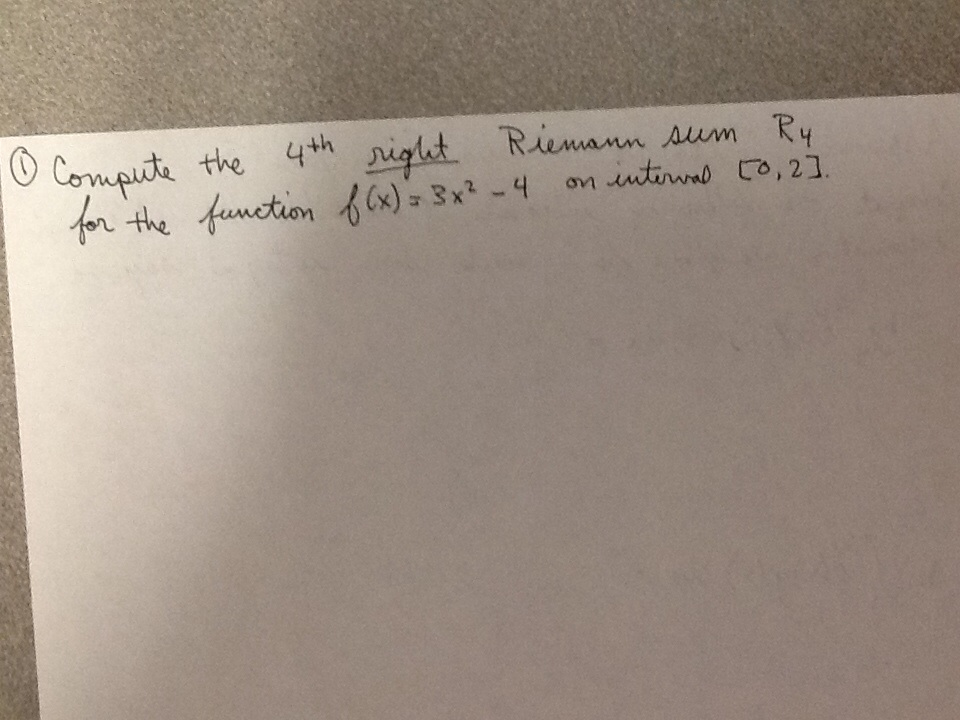 ① Compute the 4th right Riemann sum R₄
for the function f(x) = 3x² - 4 on interval [0,2].